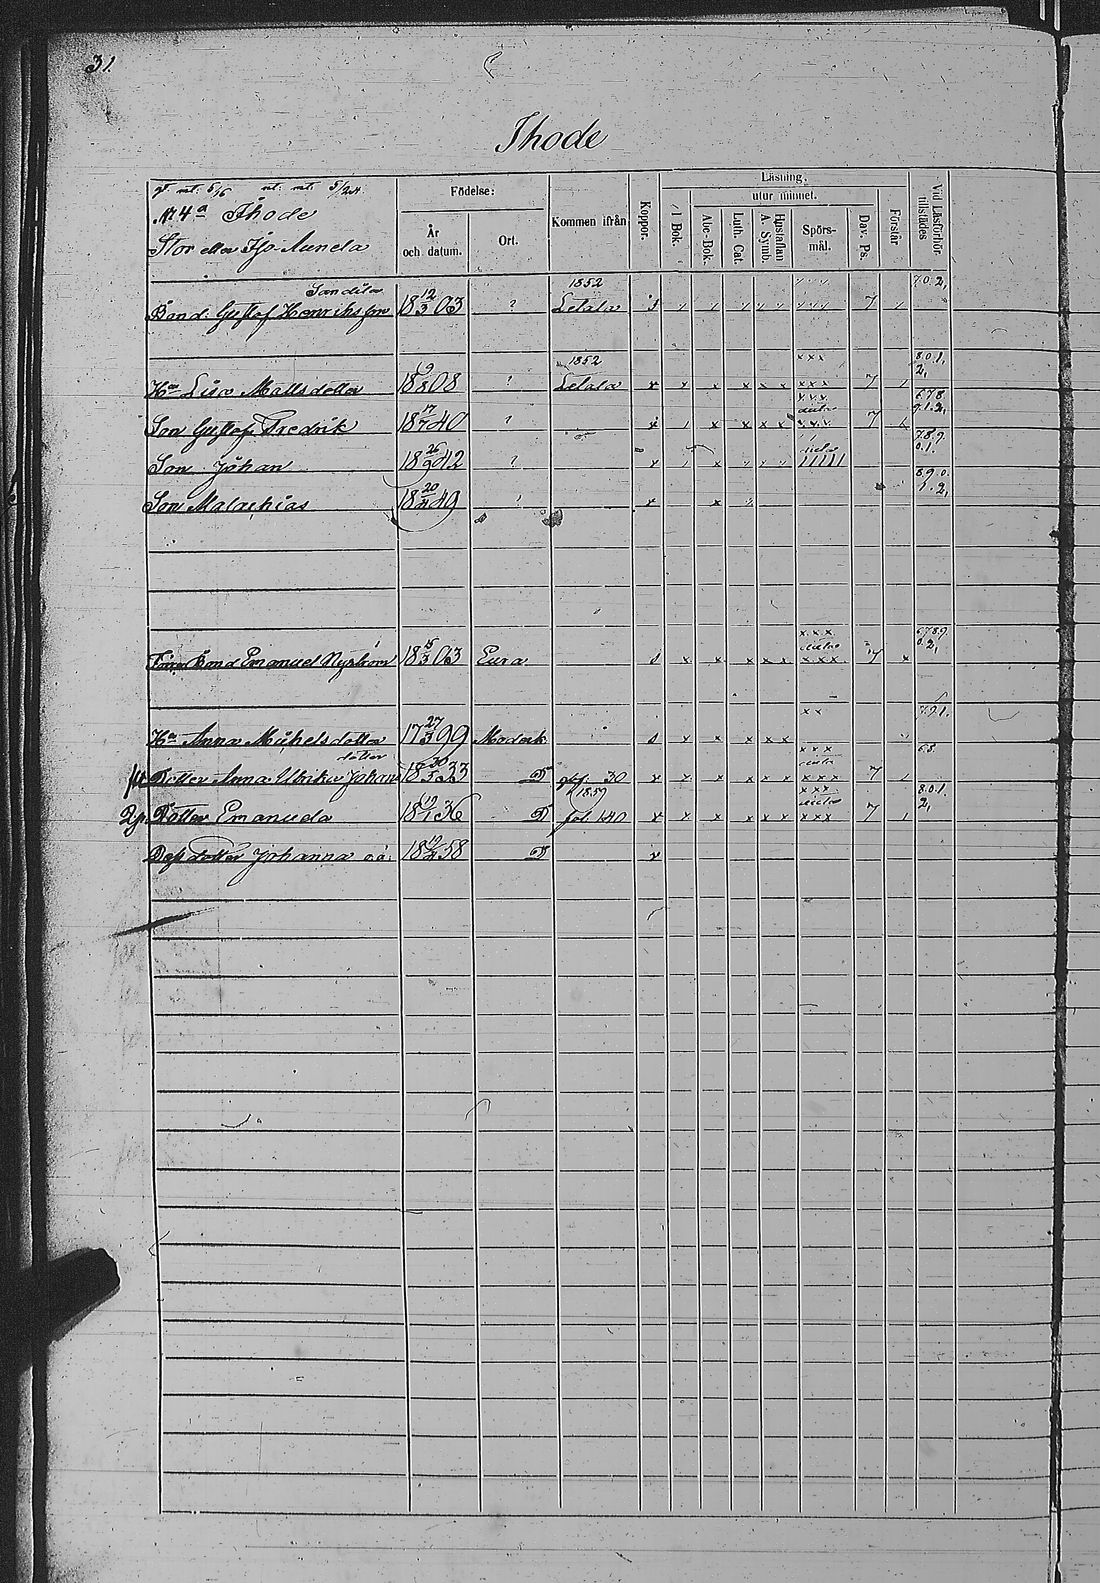 31.
Ihode
g. mt. 5/6 nt. mt. 5/24
№ 4a Ihode
Stor eller Iso Aunela
Födelse:
År och datum.
Ort.
Kommen ifrån
Koppor.
Läsning.
I Bok.
utur minnet.
Abc-Bok.
Luth. Cat.
Hustaflan A. Symb.
Spörs-mål.
Dav. Ps.
Förstår
Vid Läsförhör tillstädes
Bond. Gustaf Henriksson 18 12/3 03 ? 1852 Letala s 7 7.0.2,
Hu Lisa Mattsdotter 18 9/8 08 ? 1852 Letala x x x x x x x x x x x x 7 8.0.1. 2,
Son Gustaf Fredrik 18 17/7 40 ? x x x x x 7 6.7.8 9.1.2,
Son Johan 18 26/9 42 ? x x 7.8.9. 0.1.
Son Malachias 18 20/4 49 x x 8.9.0. 1.2,
Förra Bond Emanuel Nyström 18 15/3 03 Eura s x x x x x x x x x x x 7 x 6.7.8.9. 0.2,
Hu Anna Michelsdotter 17 27/3 99 s x x x x x x x 7.9.1.
Dotter Anna Ulrika Johansdotter 18 30/5 33 D 30 x x x x x x x x x x x x 7 6.8.
Dotter Emanuela 18 19/1 36 D 1859 fol. 140 x x x x x x x x x x x x 7 8.0.1. 2,
Dess dotter Johanna oä. 18 19/4 58 D v